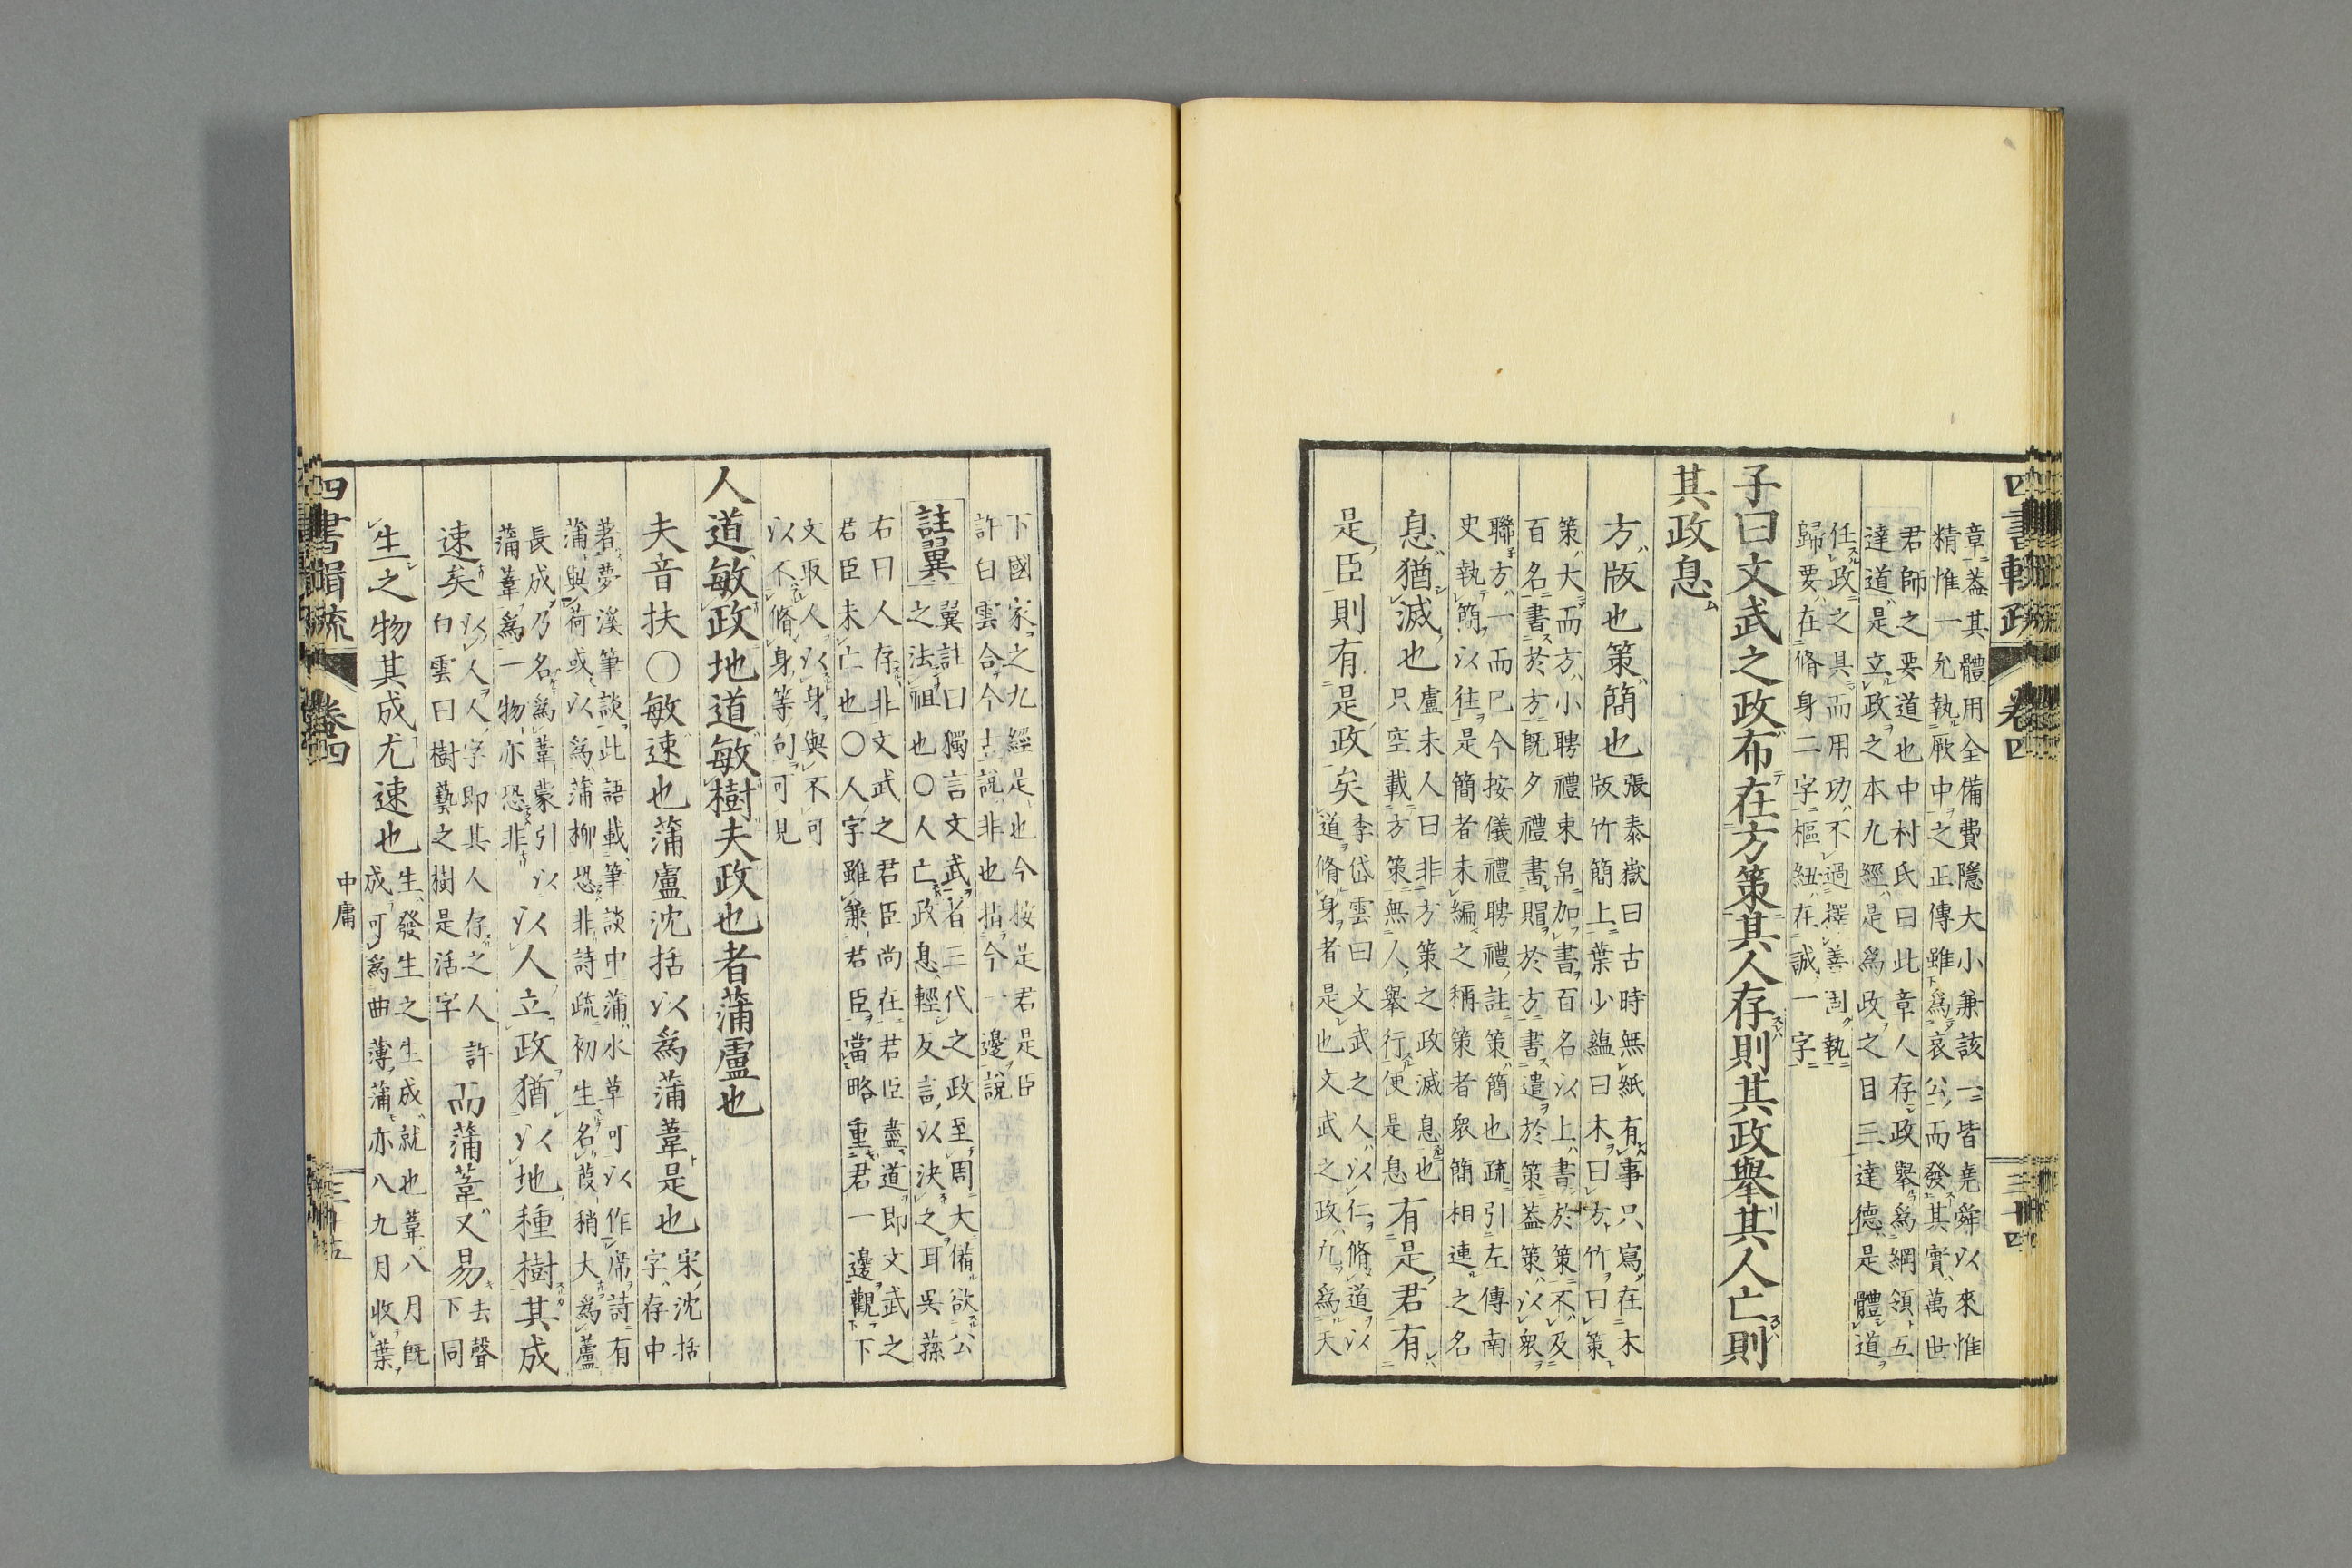 四書輯疏 卷四 三十四
章蓋其體用全備費隱大小兼該一一皆堯舜以來惟
精惟一允執厥中之正傳雖爲哀公而發其實萬世
君師之要道也中村氏曰此章人存政舉爲綱領五
達道是立政之本九經是爲政之目三達德是體道
任政之具而用功不過擇善固執
歸要在脩身二字樞紐在誠一字
子曰文武之政布在方策其人存則其政舉其人亡則
其政息
方版也策簡也
張泰嶽曰古時無紙有事只寫在木
版竹簡上葉少蘊曰木曰方竹曰策
策大而方小聘禮束帛加書百名以上書於策不及
百名書於方既夕禮書賵於方書遣於策蓋策以衆
聯方一而已今按儀禮聘禮註策簡也疏引左傳南
史執簡以往是簡者未編之稱策者衆簡相連之名
息猶滅也
盧未人曰非方策之政滅息也
只空載方策無人舉行便是息
有是君有
是臣則有是政矣
李岱雲曰文武之人以仁脩道以
道脩身者是也文武之政九爲天
下國家之九經是也今按是君是臣
許白雲合今古說非也拈今一邊說
註翼
翼註曰獨言文武者三代之政至周大備欲公
之法祖也○人亡政息輕反言以決之耳吳蓀
右曰人存非文武之君臣尚在君臣盡道即文武之
君臣未亡也○人字雖兼君臣當略重君一邊觀下
文取人以身與不可
以不脩身等句可見
人道敏政地道敏樹夫政也者蒲盧也
夫音扶○敏速也蒲盧沈括以爲蒲葦是也
宋沈括
字存中
著夢溪筆談此語載筆談中蒲水草可以作席詩有
蒲與荷或以爲蒲柳恐非詩疏初生名葭稍大爲蘆
長成乃名爲葦蒙引以
蒲葦爲一物亦恐非
以人立政猶以地種樹其成
速矣
以人人字即其人存之人許
白雲曰樹藝之樹是活字
而蒲葦又易
去聲
下同
生之物其成尤速也
生發生之生成就也葦八月既
成可爲曲薄蒲亦八九月收葉
四書輯疏 卷四 中庸 三十五